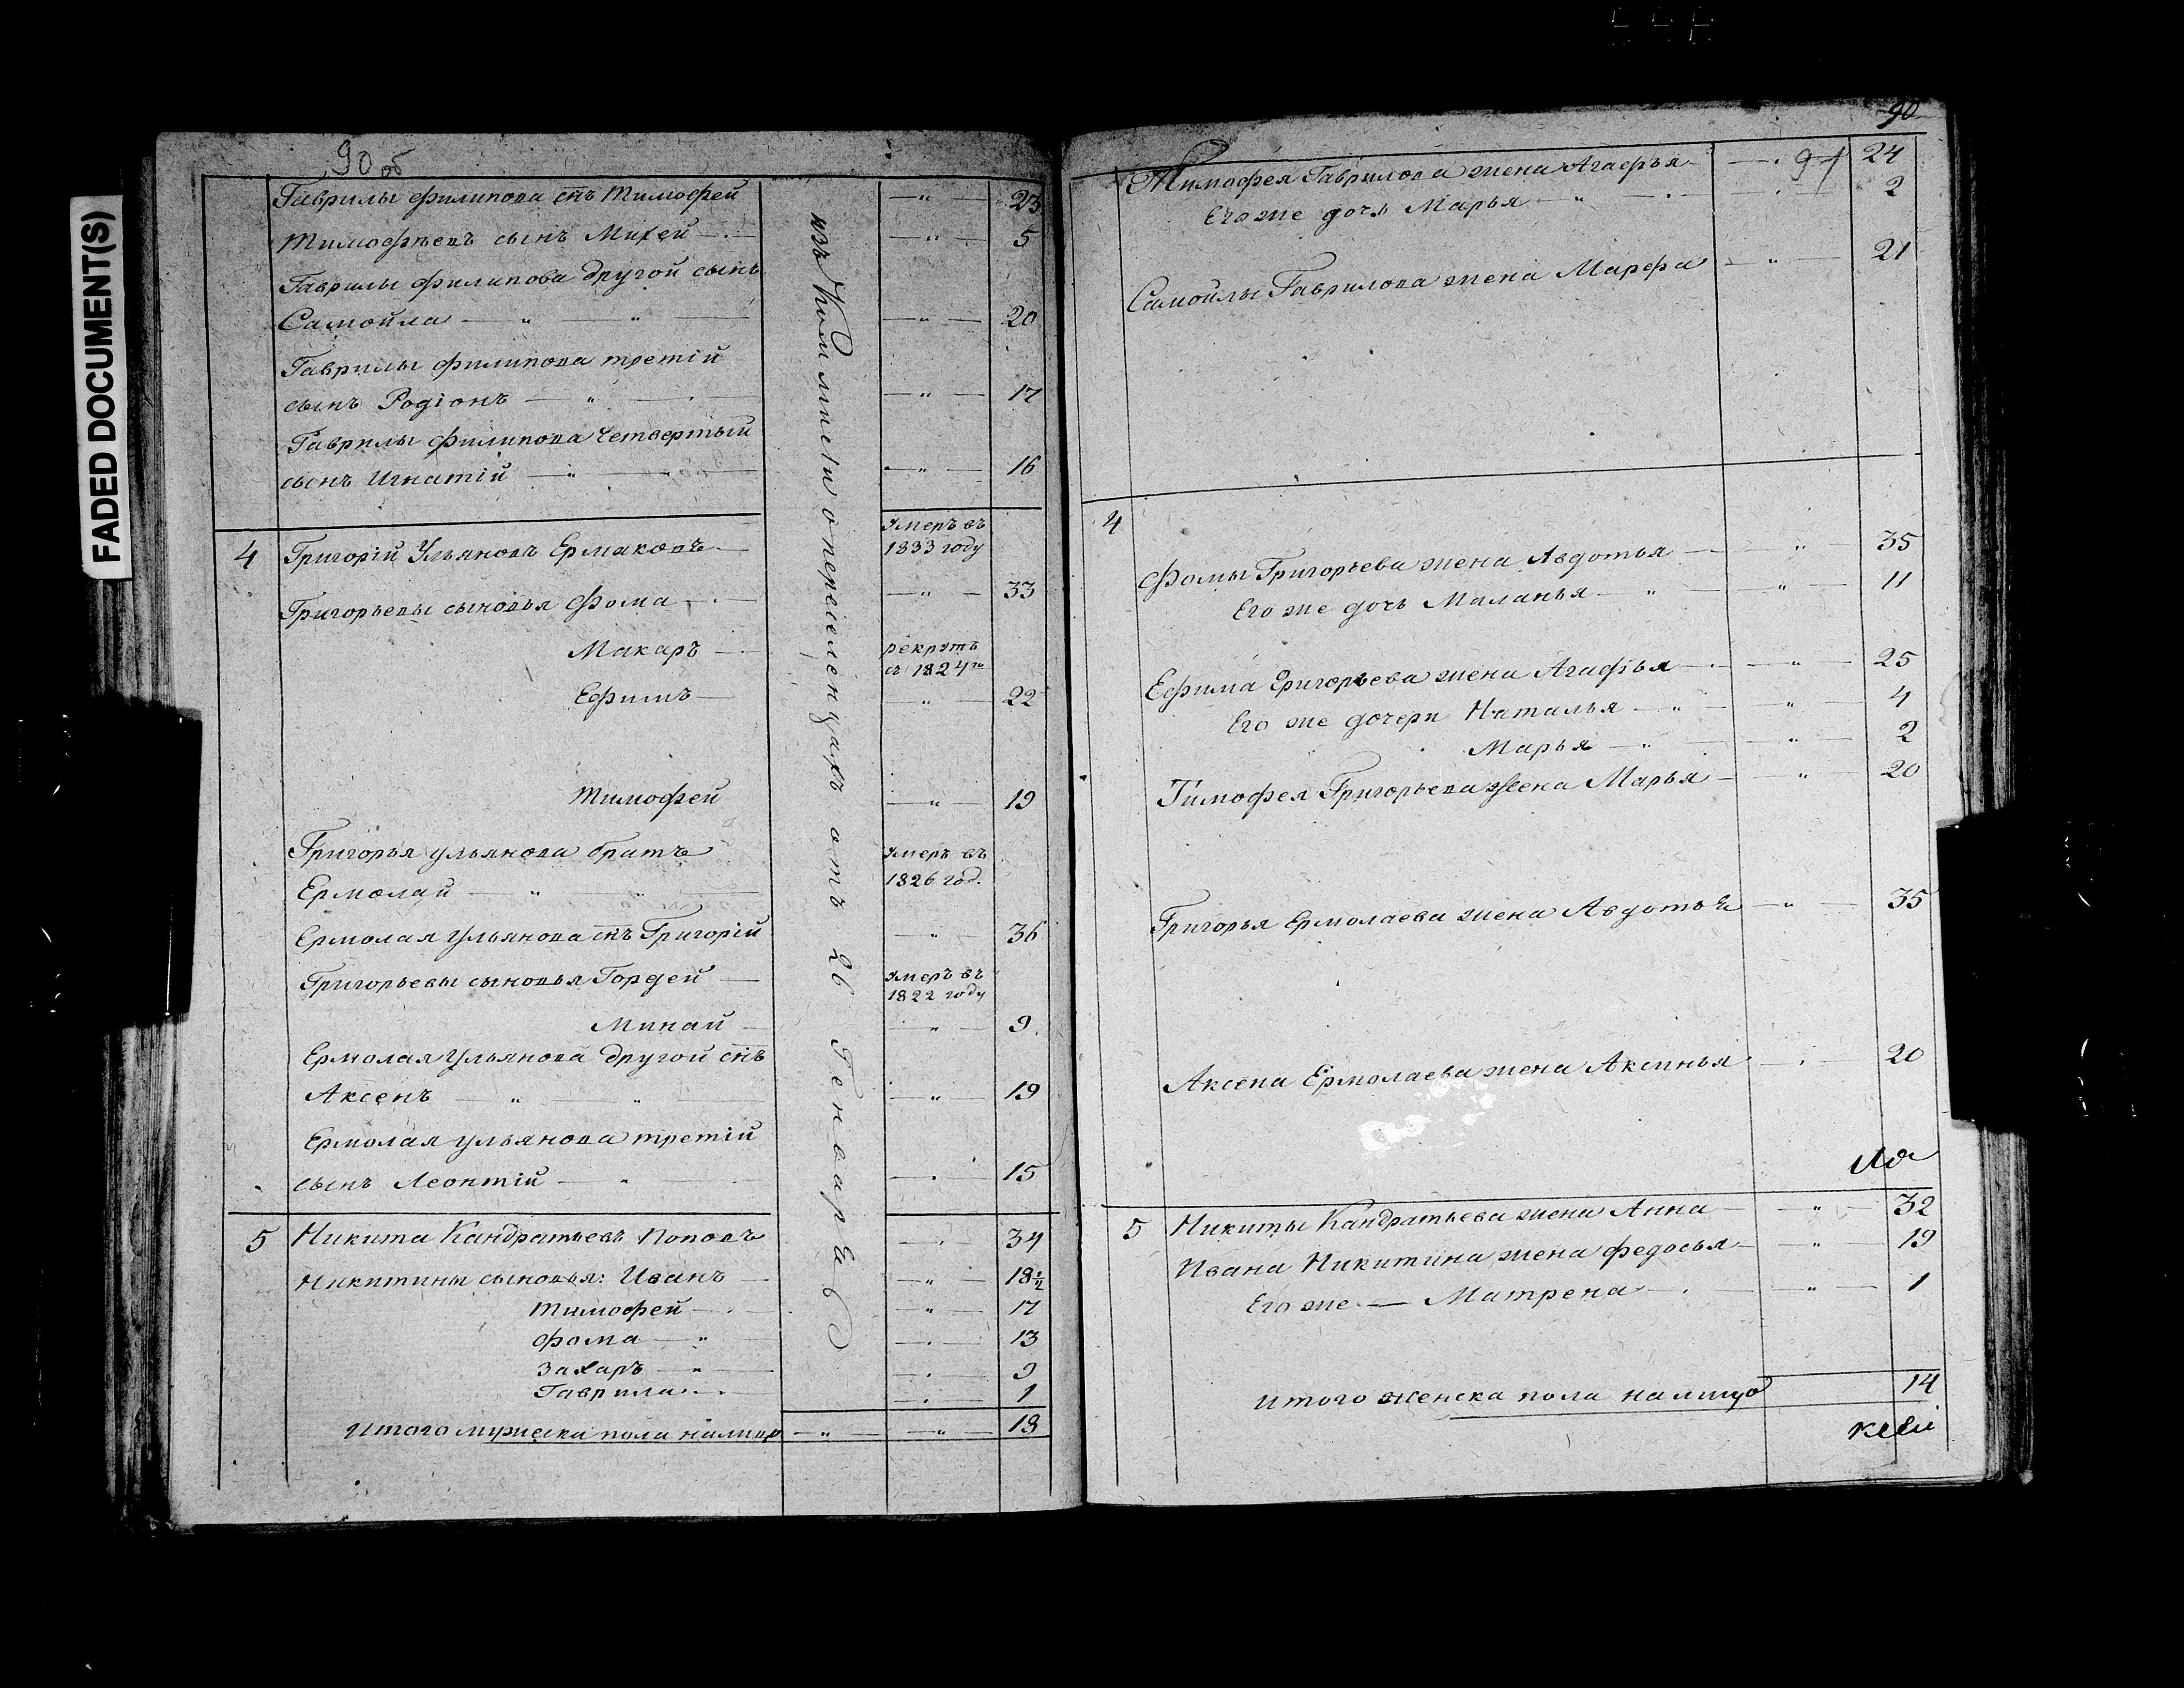 FADED DOCUMENT(S)
90 об
Гаврилы Филипова снъ Тимофей — " — 23
Тимофѣевъ сынъ Михей — " — 5
Гаврилы Филипова другой сынъ
Самойла — " — " — — " — 20
Гаврилы Филипова третій
сынъ Родіонъ — " — — " — 17
Гаврилы Филипова четвертый
сынъ Игнатій — " — — " — 16
умеръ въ
4 Григорій Ульяновъ Ермаковъ 1833 году
Григорьевы сыновья Фома — " — 33
Макаръ рекрутъ
съ 1824го
Ефимъ — " — 22
Тимофей — " — 19
Григорья Ульянова братъ умеръ въ
Ермолай — " — " — 1826 год.
Ермолая Ульянова снъ Григорій — " — 36
Григорьевы сыновья Гордей — умеръ въ
1822 году
Минай — " — 9
Ермолая Ульянова другой снъ
Аксенъ — " — " — — " — 19
Ермолая Ульянова третій
сынъ Леонтій — " — — . — 15
5 Никита Кандратьевъ Поповъ — . — 34
Никитины сыновья: Иванъ — — " — 18½
Тимофей — " — 17
Фома — " — . — 13
Захаръ — " — . — 9
Гаврила — . — 1
Итого мужеска пола налицо — " — — " — 18
отъ 26 Генваря
90
91
Тимофея Гаврилова жена Агафья — . — 24
Его же дочь Марья — " — . — 2
Самойлы Гаврилова жена Марфа — " — 21
4
Фомы Григорьева жена Авдотья — " — 35
Его же дочь Маланья — " — — " — 11
Ефима Григорьева жена Агафья — " — 25
Его же дочери Наталья — " — — " — 4
Марья — " — — " — 2
Тимофея Григорьева жена Марья — " — 20
Григорья Ермолаева жена Авдотья — " — 35
Аксена Ермолаева жена Аксинья — . — 20
5 Никиты Кандратьева жена Анна — " — 32
Ивана Никитина жена Федосья — " — 19
Его же — Матрена — . — " — 1
Итого женска пола налицо 14